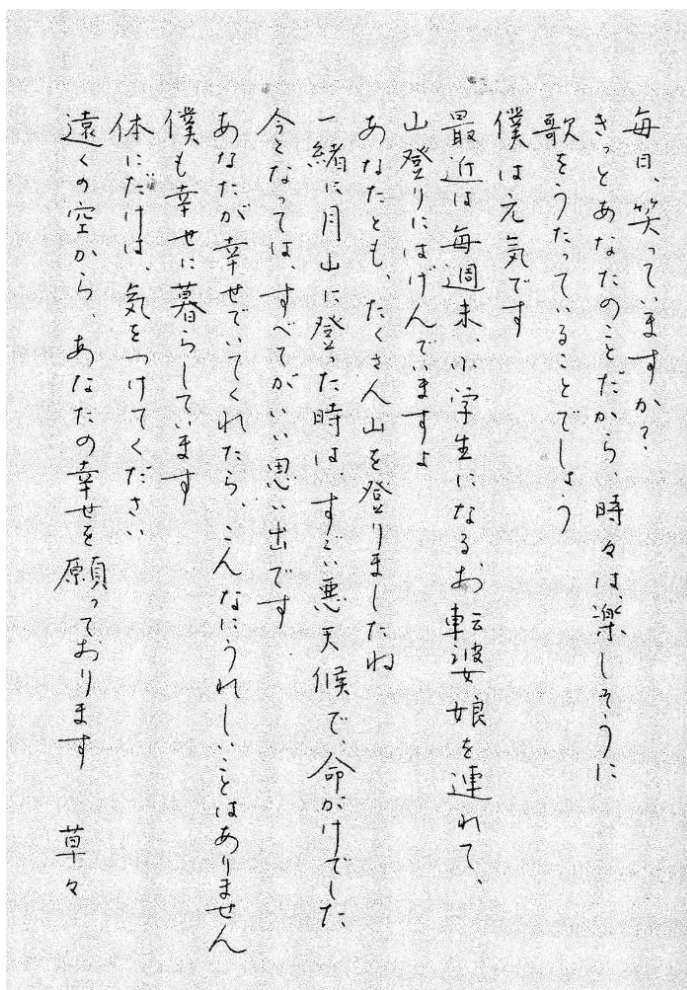 毎日、笑ってますか?
きっとあなたのことだから、時々は楽しそうに
歌をうたっているとでしょう
僕は元気です
最近は毎週末、小学生になるお転婆娘を連れて、
山登りにはげんでますよ
あなたとも、たくさん山を登りましたね
一緒に月山に登た時はすごい悪天候で命がけでした
今となっては、すべてがいい思い出です
あなたが幸せでいてくれたら、こんなにうれしいことはありません
僕も幸せに暮らしています
体にだけは、気をつけてください
遠くの空から、あなたの幸せを願っております 草々